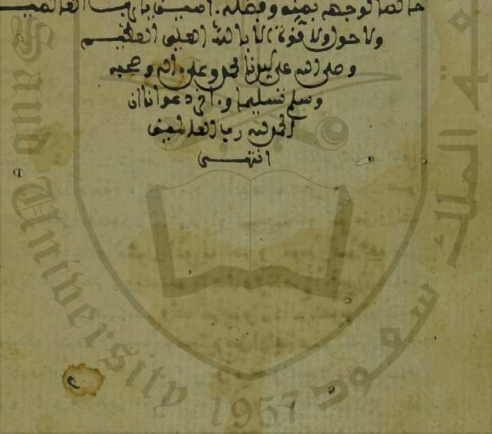 خالصا لوجهه بمنه وفضله. امين يا رب العالميـن
ولا حول ولا قوة الا بالله العلي العظيم
وصلى الله على سيدنا محمد وعلى ءاله وصحبه
وسلم تسليما وءاخر دعوانا ان
الحمد لله رب العلمين
انتهـى
جامعة الملك سعود
King Saud University
1957